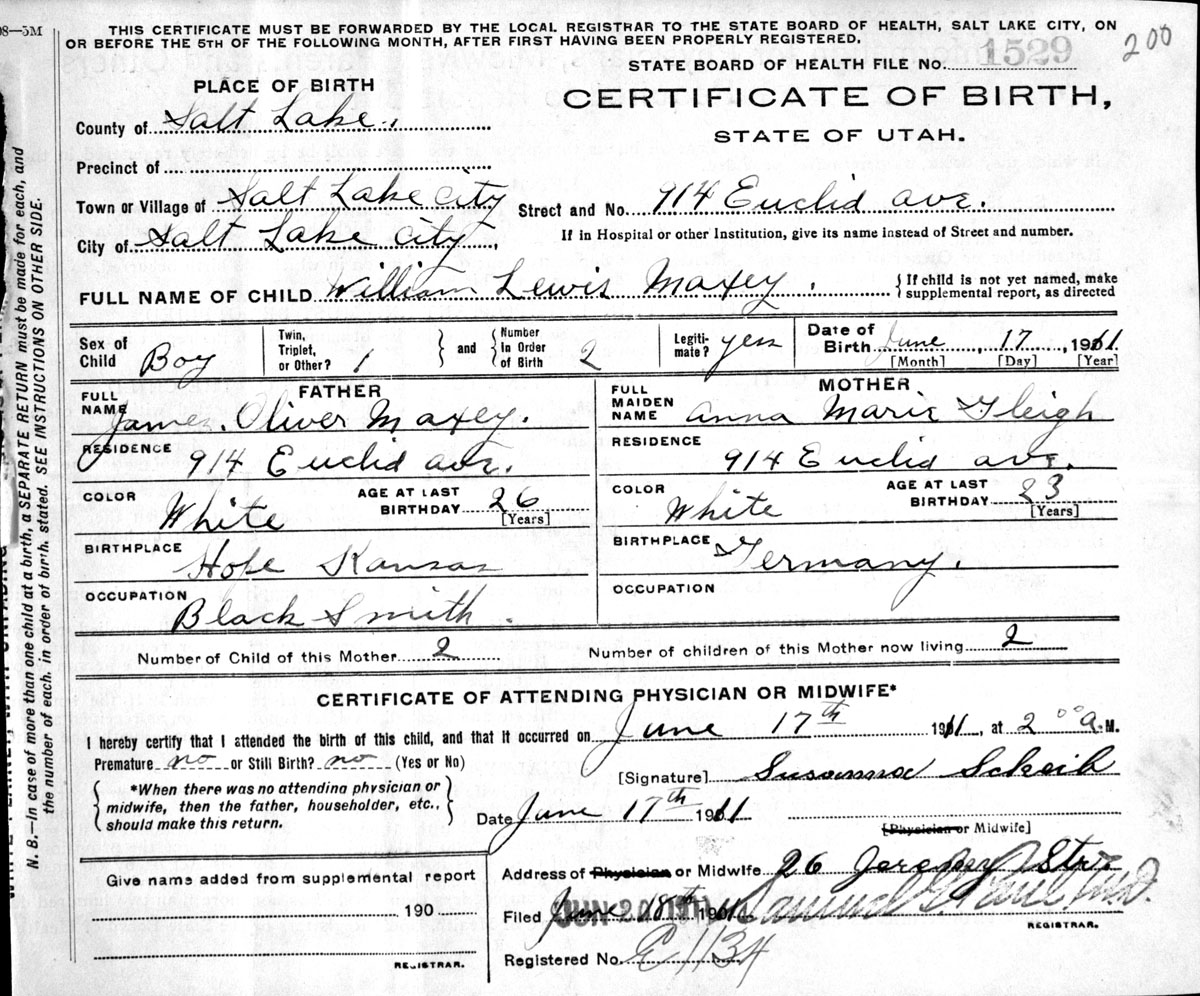 08—5M
THIS CERTIFICATE MUST BE FORWARDED BY THE LOCAL REGISTRAR TO THE STATE BOARD OF HEALTH, SALT LAKE CITY, ON
OR BEFORE THE 5TH OF THE FOLLOWING MONTH, AFTER FIRST HAVING BEEN PROPERLY REGISTERED.
200
STATE BOARD OF HEALTH FILE NO. 1529
PLACE OF BIRTH
CERTIFICATE OF BIRTH,
STATE OF UTAH.
County of Salt Lake.
Precinct of
Town or Village of Salt Lake City
Street and No. 914 Euclid ave.
City of Salt Lake City.
If in Hospital or other Institution, give its name instead of Street and number.
FULL NAME OF CHILD William Lewis Maxey.
If child is not yet named, make
supplemental report, as directed
Sex of Child Boy
Twin, Triplet, or Other? 1
and
Number In Order of Birth 2
Legiti-mate? yes
Date of Birth June 17, 1911
[Month] [Day] [Year]
FATHER
FULL NAME James. Oliver Maxey.
RESIDENCE 914 Euclid ave.
COLOR White
AGE AT LAST BIRTHDAY 26
[Years]
BIRTHPLACE Hope Kansas
OCCUPATION Black Smith.
MOTHER
FULL MAIDEN NAME Anna Marie Gleigh
RESIDENCE 914 Euclid ave.
COLOR White
AGE AT LAST BIRTHDAY 23
[Years]
BIRTHPLACE Germany.
OCCUPATION
Number of Child of this Mother 2
Number of children of this Mother now living 2
CERTIFICATE OF ATTENDING PHYSICIAN OR MIDWIFE*
I hereby certify that I attended the birth of this child, and that it occurred on June 17th 1911, at 2 00 a.M.
Premature no or Still Birth? no (Yes or No)
*When there was no attending physician or
midwife, then the father, householder, etc.,
should make this return.
[Signature] Susanna Scheib
Date June 17th 1911
[Physician or Midwife]
Address of Physician or Midwife 26 Jeremy Str.
Give name added from supplemental report
190
REGISTRAR.
Filed June 18th 191
JUN 20 1911
Samuel G. Paul M.D.
REGISTRAR.
Registered No. E 1134
N. B.—In case of more than one child at a birth, a SEPARATE RETURN must be made for each, and
the number of each, in order of birth, stated. SEE INSTRUCTIONS ON OTHER SIDE.